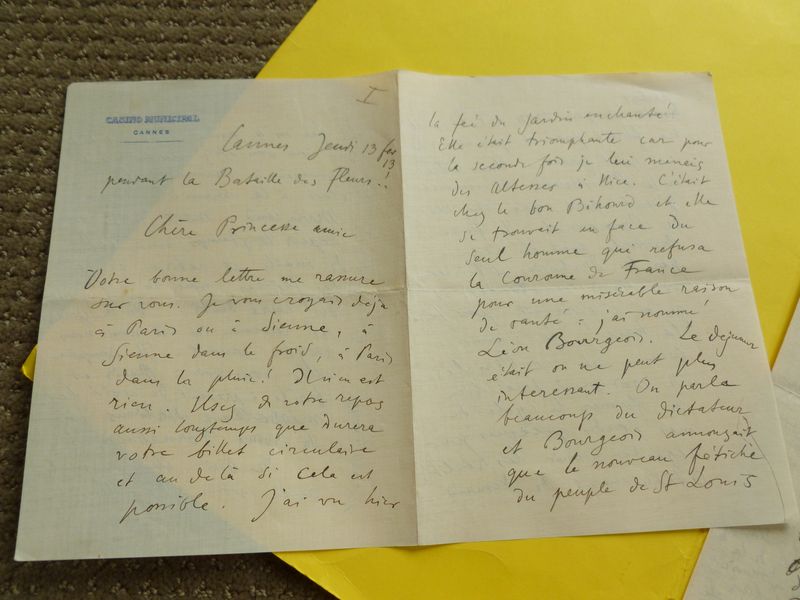 I
CASINO MUNICIPAL
CANNES
Cannes Jeudi 13 fev 13
pendant la Bataille des Fleurs!!
Chère Princesse amie
Votre bonne lettre me rassure
sur vous. Je vous croyais déjà
à Paris ou à Sienne, à
Sienne dans le froid, à Paris
dans la pluie. Il n'en est
rien. Usez de votre repos
aussi longtemps que durera
votre billet circulaire
et au delà si cela est
possible. J'ai vu hier
la fée du jardin enchanté
Elle était triomphante car pour
la seconde fois je lui menais
des Altesses à Nice. C'était
chez le bon Bihourd et elle
se trouvait en face du
seul homme qui refusa
la Couronne de France
pour une misérable raison
de santé : j'ai nommé
Léon Bourgeois. Le déjeuner
était on ne peut plus
interessant. On parla
beaucoups du dictateur
et Bourgeois annonçait
que le nouveau fétiche
du peuple de St Louis